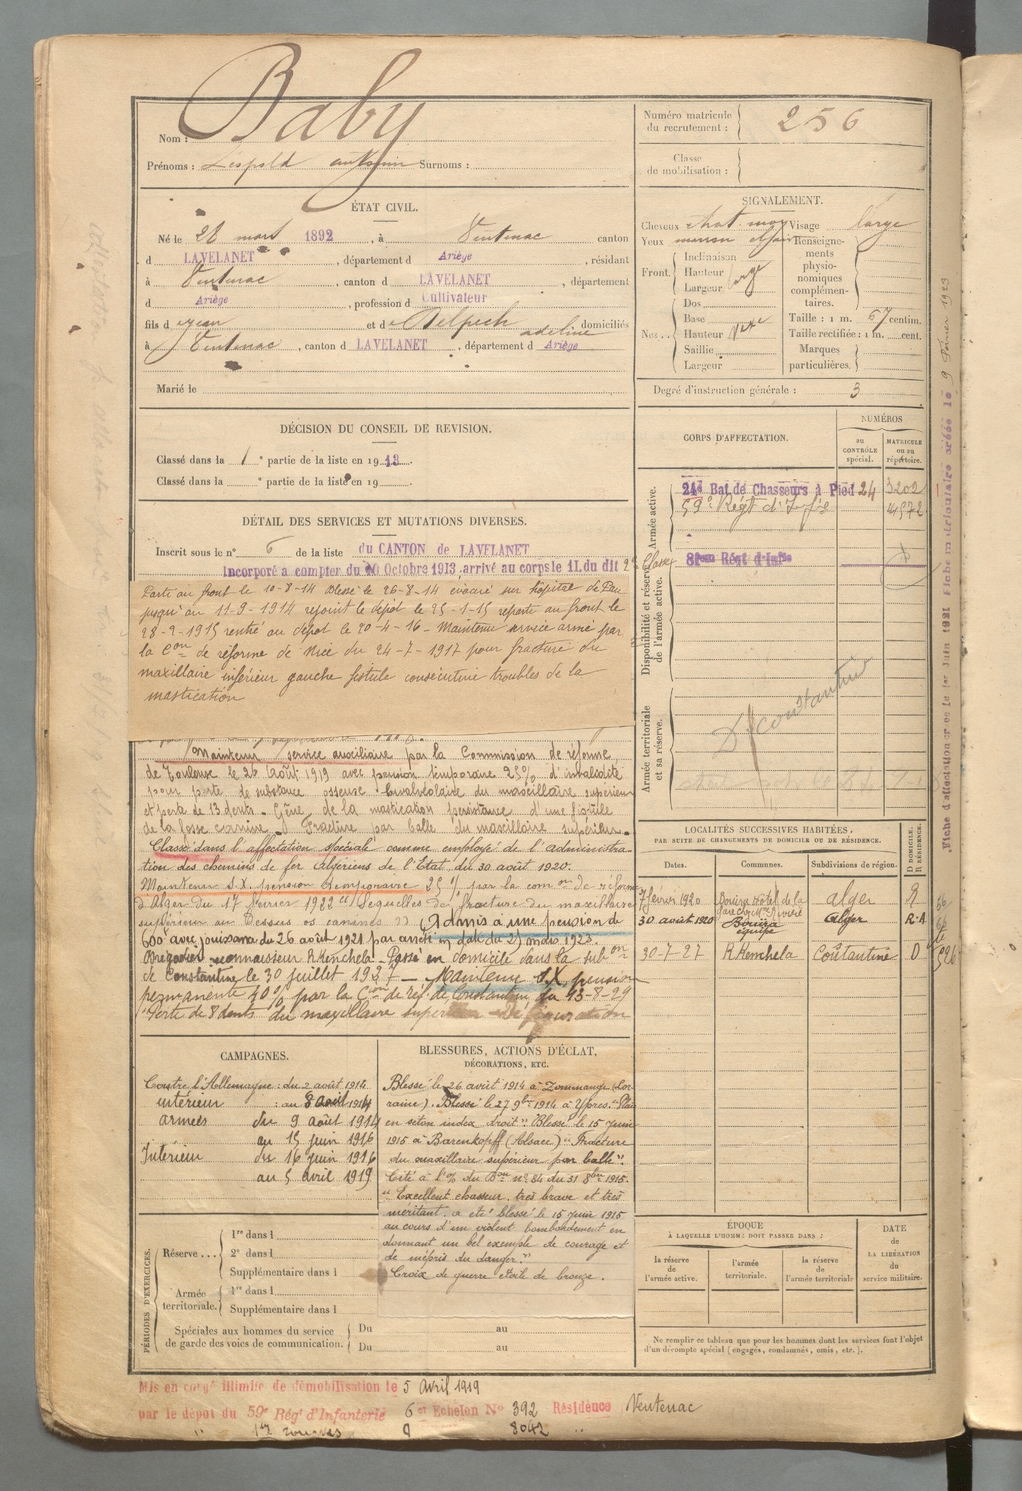 Nom : Baby
Prénoms : Léopold Antonin Surnoms :
Numéro matricule du recrutement : 256
Classe de mobilisation :
ÉTAT CIVIL.
Né le 28 mars 1892, à Ventenac canton
d LAVELANET, département d Ariège, résidant
à Ventenac, canton d LAVELANET, département
d Ariège, profession d Cultivateur
fils d Jean et d Delpech adeline domiciliés
à Ventenac, canton d LAVELANET, département d Ariège
Marié le
SIGNALEMENT.
Cheveux chat. moy Visage large
Yeux marron
Renseignements physionomiques complémentaires.
Front.
Inclinaison
Hauteur
Largeur
Nez..
Dos
Base
Hauteur
Saillie
Largeur
Taille : 1 m. 67 centim.
Taille rectifiée : 1 m. cent.
Marques particulières.
Degré d'instruction générale : 3
DÉCISION DU CONSEIL DE REVISION.
Classé dans la 1e partie de la liste en 1913.
Classé dans la e partie de la liste en 19
DÉTAIL DES SERVICES ET MUTATIONS DIVERSES.
Inscrit sous le n° 6 de la liste du CANTON de LAVELANET
Incorporé à compter du 10 Octobre 1913, arrivé au corps le 11. du dit 2e Classe
Parti au front le 10-8-14 Blessé le 26-8-14 évacué sur hôpital de Pau
jusqu'au 11-9-1914 rejoint le dépôt le 25-1-15 reparti au front le
28-2-1915 rentré au dépôt le 20-4-16 – Maintenu service armé par
la Con de réforme de Nice du 24-7-1917 pour fracture du
maxillaire inférieur gauche fistule consécutive troubles de la
mastication
Maintenu service auxiliaire par la Commission de réforme
de Toulouse le 26 Août 1919 avec pension temporaire 25% d'invalidité
pour perte de substance osseuse du maxillaire supérieur
et perte de 13 dents. Gêne de la mastication persistance d'une fistule
de la fosse canine. Fracture par balle du maxillaire supérieur.
Classé dans l'affectation spéciale comme employé de l'administra-
tion des chemins de fer Algériens de l'Etat du 30 août 1920.
Maintenu S.X. pension temporaire 25% par la comon de réforme
d'Alger du 17 février 1922 Séquelles de fracture du maxillaire
supérieur au dessus os canines Admis à une pension de
600f avec jouissance du 26 août 1921 par arrêté en date du 27 mars 1923.
Brigadier reconnaisseur R. Kenchela - Passé en domicile dans la subon
de Constantine le 30 juillet 1927 – Maintenu S.X. pension
permanente 40% par la Con de réf. de Constantine du 13-8-29
"Perte de 8 dents du maxillaire supérieur - Défiguration
CORPS D'AFFECTATION.
NUMÉROS
au CONTRÔLE spécial.
MATRICULE ou au répertoire.
Armée active.
24e Bat de Chasseurs à Pied 24 3202
59e Régt d'Infie 4572
Disponibilité et réserve de l'armée active.
Régt d'Infie
Armée territoriale et sa réserve.
Constantine
Fiche d'affectation créée le 1er Juin 1921
créée le 9 Février 1923
LOCALITÉS SUCCESSIVES HABITÉES,
PAR SUITE DE CHANGEMENTS DE DOMICILE OU DE RÉSIDENCE.
D DOMICILE. R RÉSIDENCE.
Dates. Communes. Subdivisions de région.
7 février 1920 Bouira hôtel de la Alger R
30 août 1920 Bouira équipe Alger R.A
30-7-27 R. Kenchela Constantine D
CAMPAGNES.
Contre l'Allemagne : du 2 août 1914
intérieur : au 8 août 1914
armées du 9 août 1914
au 15 juin 1916
Intérieur du 16 juin 1916
au 5 avril 1919
BLESSURES, ACTIONS D'ÉCLAT, DÉCORATIONS, ETC.
Blessé le 26 août 1914 à Zommange (Lor-
raine). Blessé le 27 9bre 1914 à Ypres. "Plaie
en seton index droit" Blessé le 15 Juin
1915 à Barenkopff (Alsace) "Fracture
du maxillaire supérieur par balle".
Cité à l'o/ du Bon n° 84 du 31 8bre 1915.
"Excellent chasseur, très brave et très
méritant. a été blessé le 15 Juin 1915
au cours d'un violent bombardement en
donnant un bel exemple de courage et
de mépris du danger."
Croix de guerre étoile de bronze.
PÉRIODES D'EXERCICES.
Réserve...
1re dans l
2e dans l
Supplémentaire dans l
Armée territoriale.
1re dans l
Supplémentaire dans l
Spéciales aux hommes du service de garde des voies de communication.
Du au
Du au
ÉPOQUE
À LAQUELLE L'HOMME DOIT PASSER DANS :
la réserve de l'armée active.
l'armée territoriale.
la réserve de l'armée territoriale
DATE de LA LIBÉRATION du service militaire.
Ne remplir ce tableau que pour les hommes dont les services font l'objet
d'un décompte spécial (engagés, condamnés, omis, etc.).
Mis en congé illimité de démobilisation le 5 Avril 1919
par le dépôt du 59e Rég' d'Infanterie 6e Echelon N° 392 Résidence Ventenac
" 1er zouaves 9 8042 "